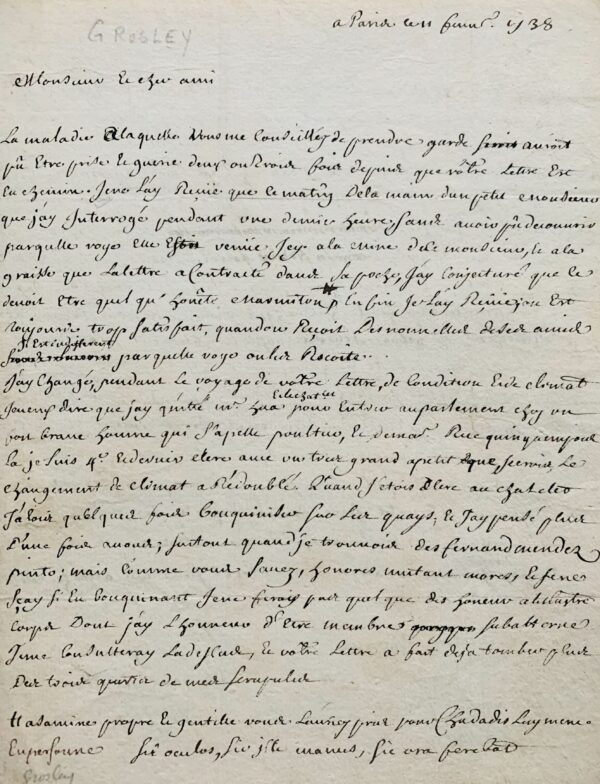 GROSLEY
a Paris le 11 1738
Monsieur et cher ami
La maladie a laquelle vous me conseillez de prendre garde auroit
pû etre prise et guerie deux ou trois fois depuis que vôtre Lettre est
en chemin. Je ne l'ay que ce matin de la main d'un petit monsieur
que j'ay Interrogé pendant une demie heure sans avoir pû decouvrir
par quelle voye elle venüe. J'ey a la mine dele monsieur, et a la
graisse que la lettre a contracté dans sa poche, J'ay conjecturé que ce
devoit etre quelqu' honête marmiton, Enfin je L'ay est
toujours trop satisfait, quand on reçoit des nouvelles de ses amis
Il est indifferent par quelle voye on les reçoite.
J'ay changé, pendant le voyage de vôtre Lettre, de condition et de climat
Je veux dire que j'ay quitté mr et le chatelet pour entrer au parlement chez un
fort brave homme qui s'apelle et demeur. Rue quinquempoix
la je suis 4e. et dernier clerc avec un tres grand apetit que, je crois, le
changement de climat a Redoublé. Quand j'etois clerc au chatelet
J'alois quelques fois bouquiniser sur les quays, et j'ay pensé plus
d'une fois a vous; surtout quand je trouvois des fernand mendez
pinto; mais comme vous sçavez, honores mutant mores, et je ne
sçay si en bouquinant Je ne ferois pas quelque des honeur a l'illustre
corps dont j'ay L'honneur d'etre membre subalterne
J'en consulteray et vôtre Lettre a fait deja tomber plus
des trois quarts de mes scrupules
Ha sa mine propre et gentille vous L'auriez pris pour
En personne sic oculos, sic ille manus, sic ora ferebat
Grosley